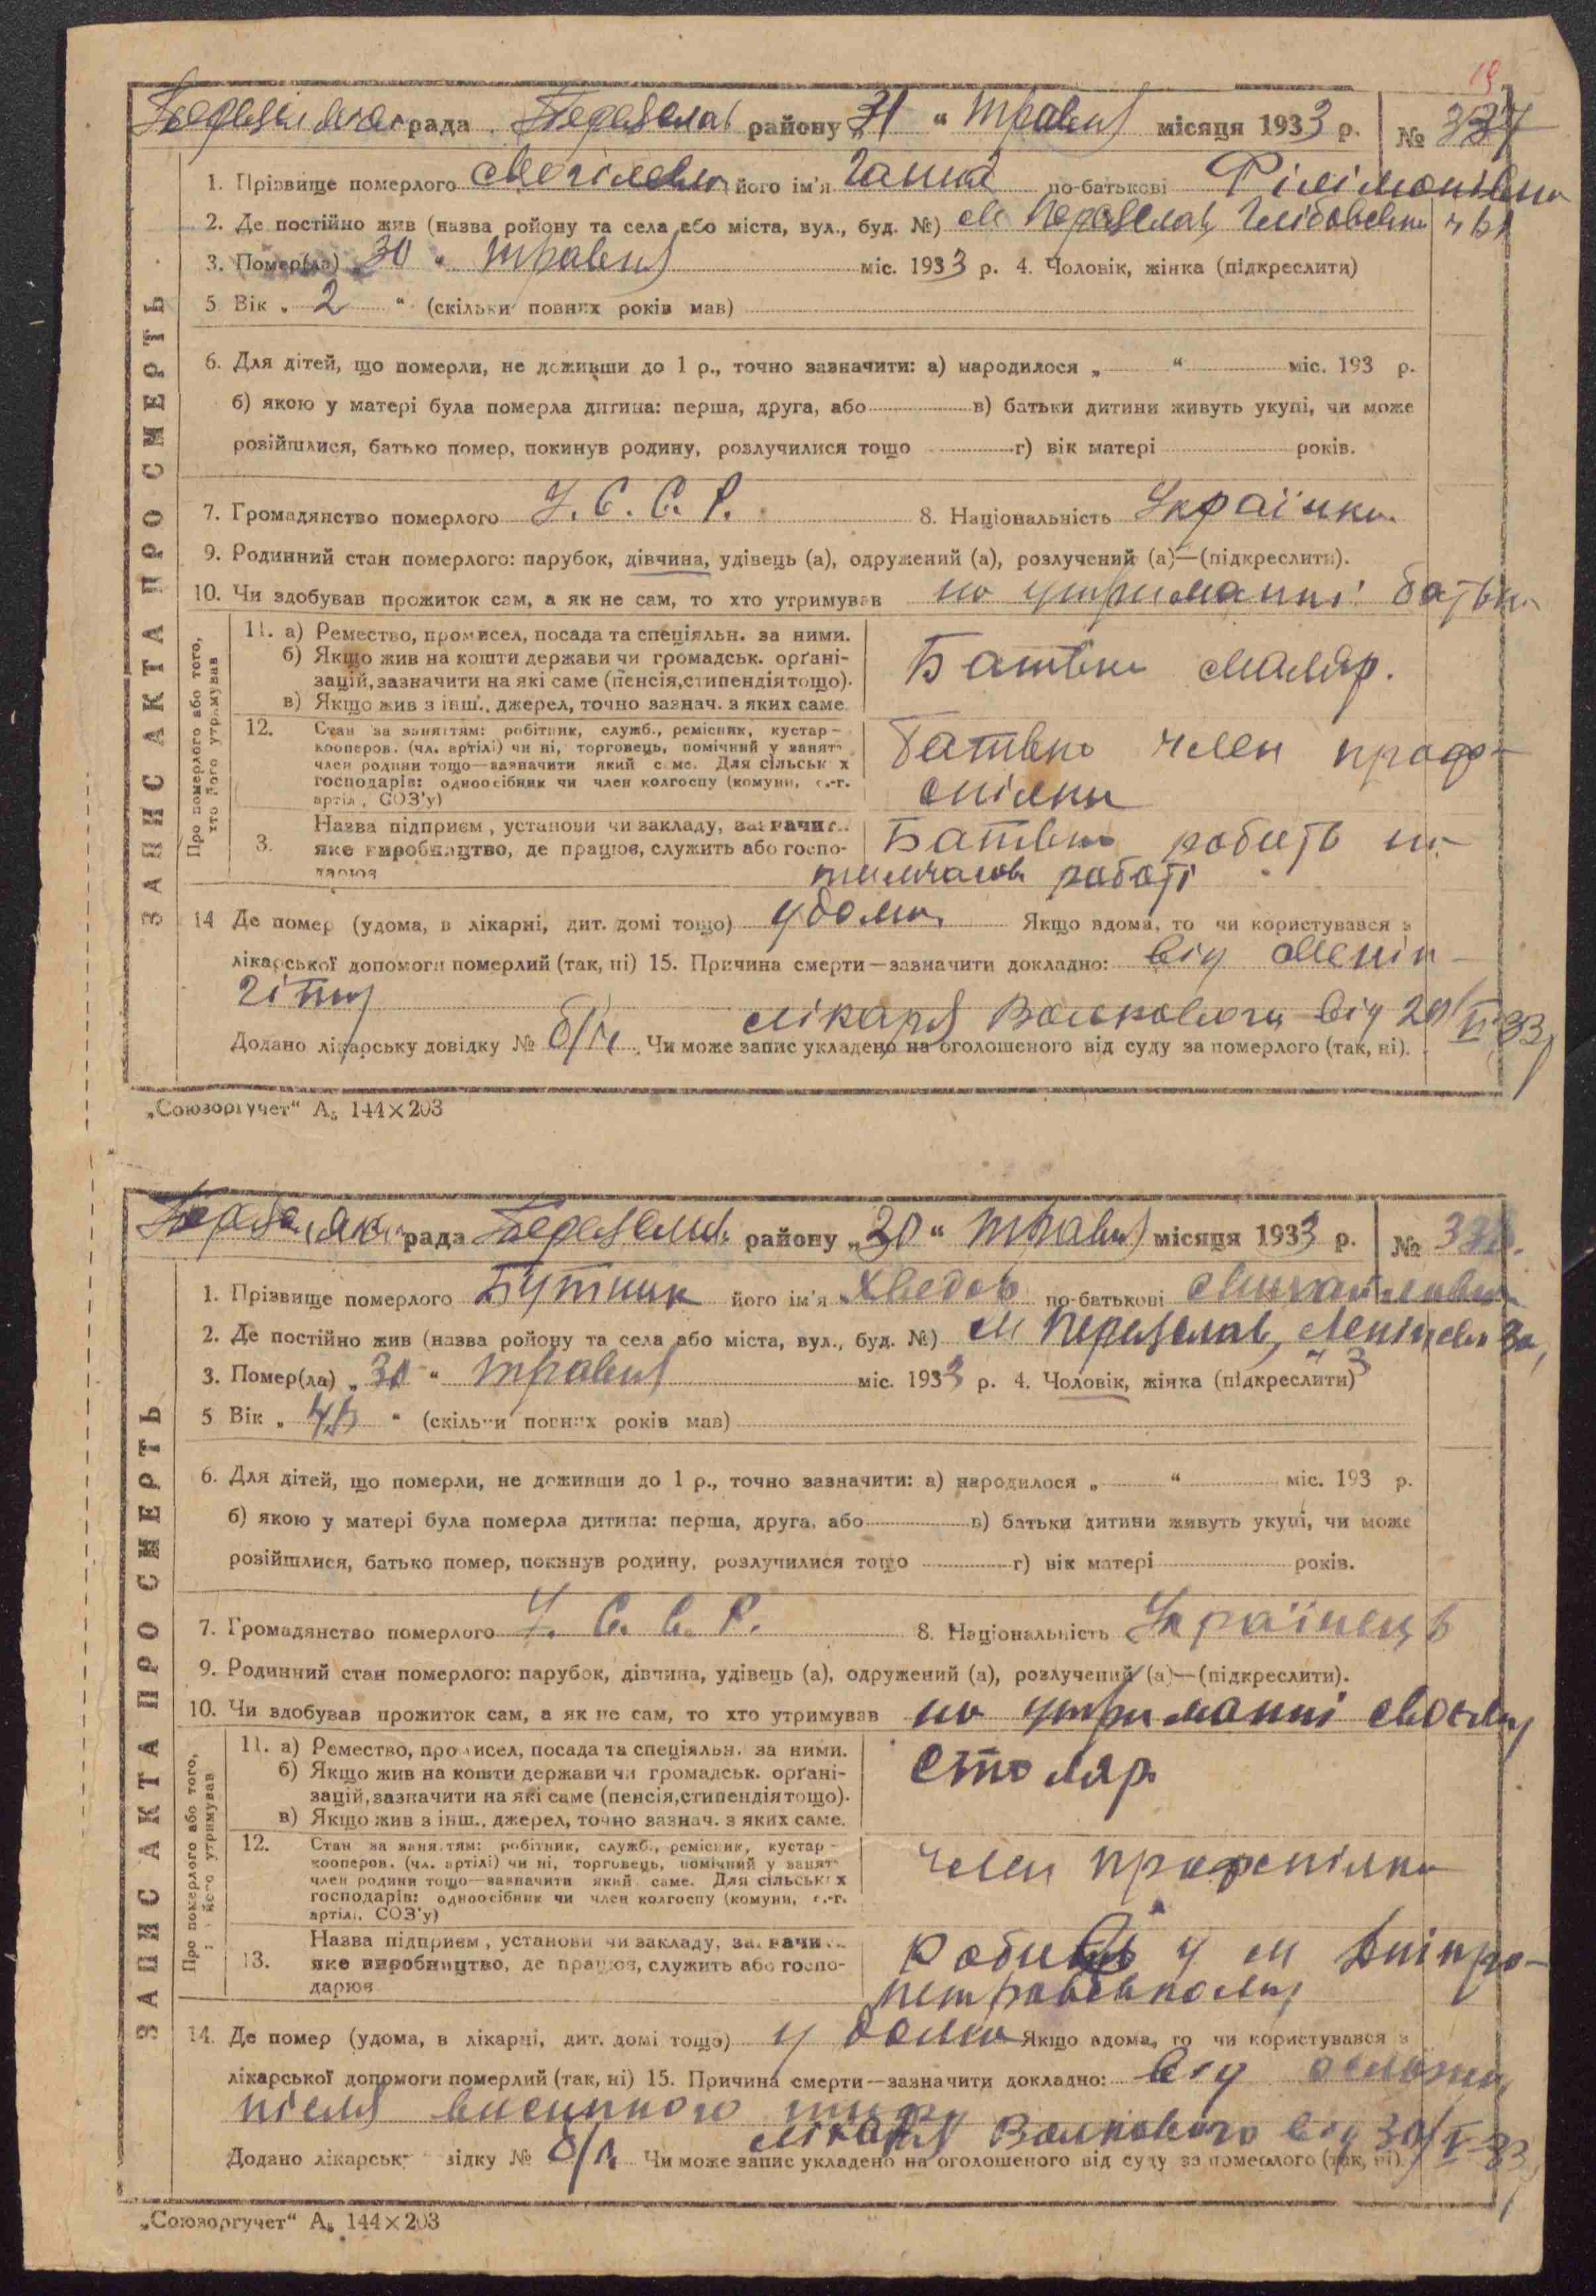 19
рада Переяслав району „31“ травня місяця 1933 р. № 337
ЗАПИС АКТА ПРО СМЕРТЬ
1. Прізвище померлого його ім'я Ганна по-батькові Філімонівна
2. Де постійно жив (назва ройону та села або міста, вул., буд. №) м Переяслав,
3. Помер(ла) „30“ травня міс. 1933 р. 4. Чоловік, жінка (підкреслити)
5 Вік „2“ (скільки повних років мав)
6. Для дітей, що померли, не доживши до 1 р., точно зазначити: а) народилося „ “ міс. 193 р.
б) якою у матері була померла дитина: перша, друга, або в) батьки дитини живуть укупі, чи може
розійшлися, батько помер, покинув родину, розлучилися тощо г) вік матері років.
7. Громадянство померлого У.С.С.Р. 8. Національність Українка.
9. Родинний стан померлого: парубок, дівчина, удівець (а), одружений (а), розлучений (а)—(підкреслити).
10. Чи здобував прожиток сам, а як не сам, то хто утримував на утриманні батька
Про померлого або того, хто його утримував
11. а) Ремество, промисел, посада та спеціяльн. за ними.
б) Якщо жив на кошти держави чи громадськ. орґані-
зацій, зазначити на які саме (пенсія, стипендія тощо).
в) Якщо жив з інш., джерел, точно зазнач. з яких саме.
Батько маляр.
12. Стан за заняттям: робітник, служб., ремісник, кустар-
кооперов. (чл. артілі) чи ні, торговець, помічний у занят
член родини тощо—зазначити який саме. Для сільськ х
господарів: одноосібник чи член колгоспу (комуни, с.-г.
артіл., СОЗ'у)
батько член проф-
спілки
3. Назва підприєм, установи чи закладу, зазначит..
яке виробництво, де працюв, служить або госпо-
дарюв
Батько робить на
тимчасов. роботі
14 Де помер (удома, в лікарні, дит. домі тощо) удома, Якщо вдома, то чи користувався з
лікарської допомоги померлий (так, ні) 15. Причина смерти—зазначити докладно: від менін-
гіту
лікаря від
Додано лікарську довідку № б/н. Чи може запис укладено на оголошеного від суду за померлого (так, ні).
„Союзоргучет“ А₅ 144×203
рада Переяслав. району „30“ травня місяця 1933 р. № 338.
ЗАПИС АКТА ПРО СМЕРТЬ
1. Прізвище померлого Бутник його ім'я Хведор по-батькові Михайлович
2. Де постійно жив (назва ройону та села або міста, вул., буд. №) м Переяслав,
3. Помер(ла) „30“ травня міс. 1933 р. 4. Чоловік, жінка (підкреслити)
5 Вік „ “ (скільки повних років мав)
6. Для дітей, що померли, не доживши до 1 р., точно зазначити: а) народилося „ “ міс. 193 р.
б) якою у матері була померла дитина: перша, друга, або в) батьки дитини живуть укупі, чи може
розійшлися, батько помер, покинув родину, розлучилися тощо г) вік матері років.
7. Громадянство померлого У.С.С.Р. 8. Національність Українець
9. Родинний стан померлого: парубок, дівчина, удівець (а), одружений (а), розлучений (а)—(підкреслити).
10. Чи здобував прожиток сам, а як не сам, то хто утримував на утриманні своєму
Про померлого або того, його утримував
11. а) Ремество, промисел, посада та спеціяльн. за ними.
б) Якщо жив на кошти держави чи громадськ. орґані-
зацій, зазначити на які саме (пенсія, стипендія тощо).
в) Якщо жив з інш., джерел, точно зазнач. з яких саме.
столяр.
12. Стан за заняттям: робітник, служб., ремісник, кустар-
кооперов. (чл. артілі) чи ні, торговець, помічний у занят
член родини тощо—зазначити який саме. Для сільськ х
господарів: одноосібник чи член колгоспу (комуни, с.-г.
артіл., СОЗ'у)
член профспілки
13. Назва підприєм, установи чи закладу, зазначит..
яке виробництво, де працюв, служить або госпо-
дарюв
у м Дніпро-
петровському
14. Де помер (удома, в лікарні, дит. домі тощо) у дома Якщо вдома, то чи користувався з
лікарської допомоги померлий (так, ні) 15. Причина смерти—зазначити докладно: від
після висипного тифу
лікаря від
Додано лікарськ відку № б/н. Чи може запис укладено на оголошеного від суду за померлого (так, ні).
„Союзоргучет“ А₅ 144×203